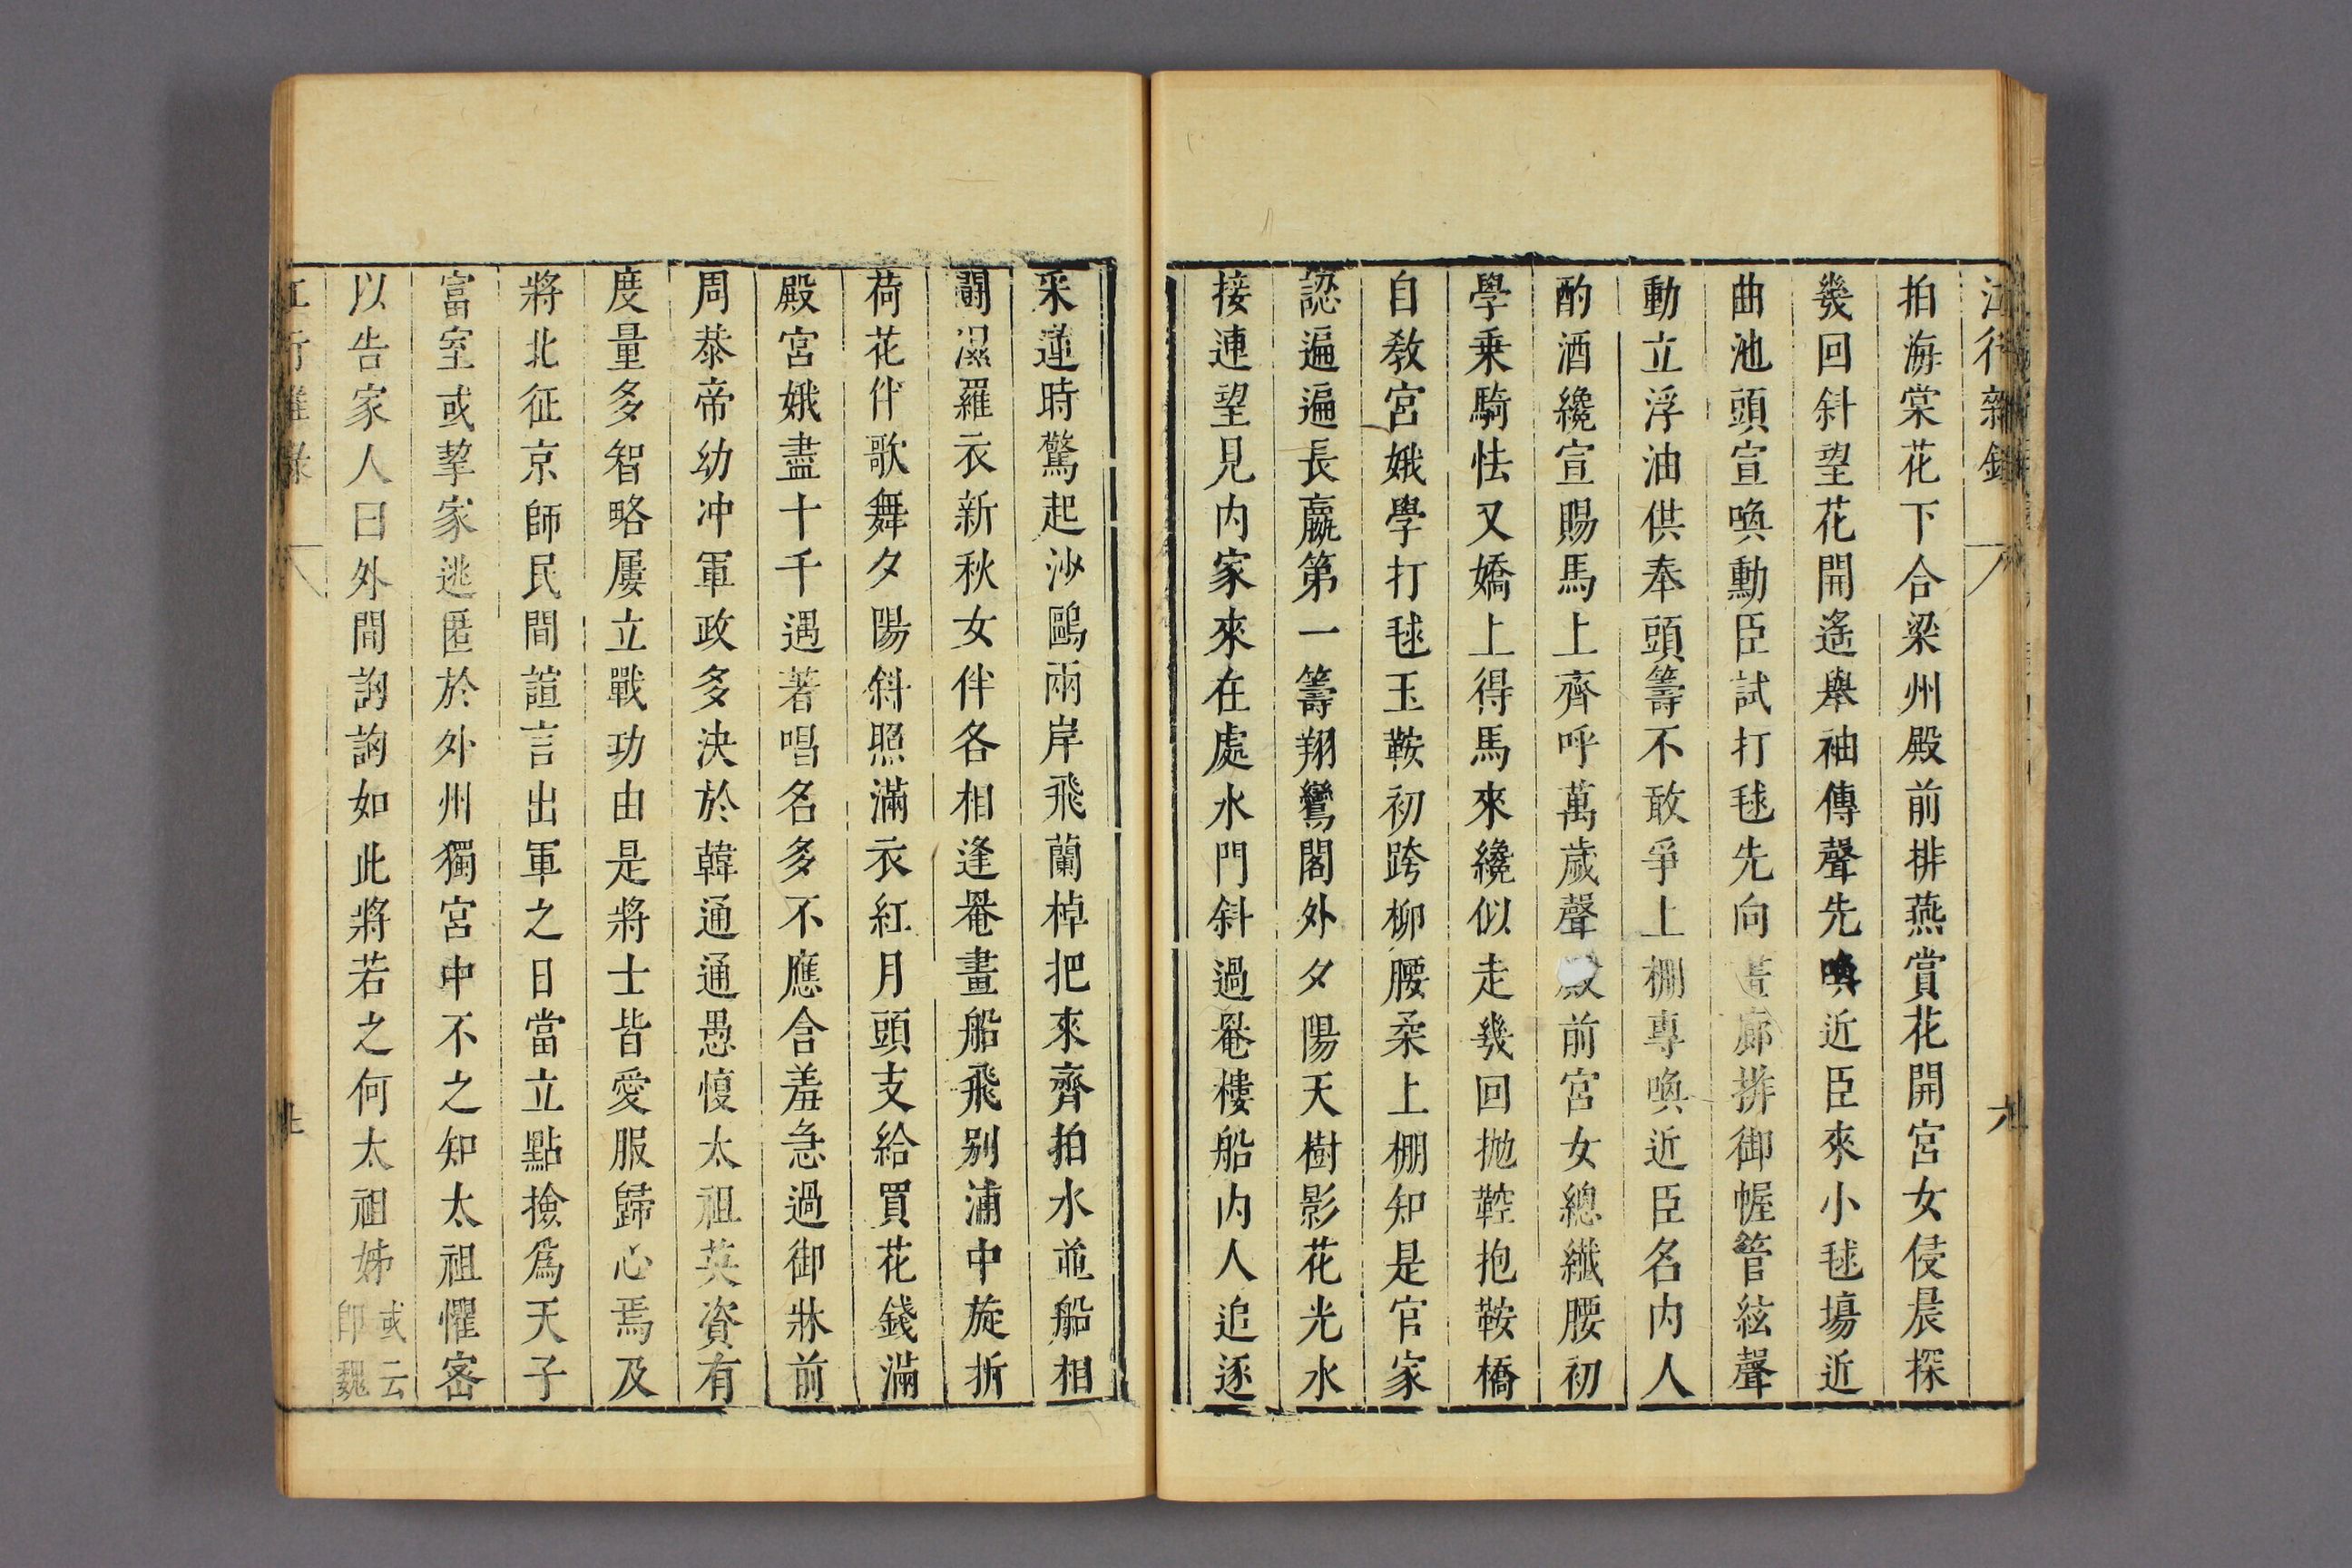 江行雜錄
九
拍海棠花下合梁州殿前排燕賞花開宮女侵晨探
幾回斜望花開遙舉袖傳聲先喚近臣來小毬塲近
曲池頭宣喚勳臣試打毬先向畫廊排御幄管絃聲
動立浮油供奉頭籌不敢爭上棚專喚近臣名内人
酌酒纔宣賜馬上齊呼萬歲聲殿前宮女總纖腰初
學乗騎怯又嬌上得馬來纔似走幾回抛鞚抱鞍橋
自教宮娥學打毬玉鞍初跨柳腰柔上棚知是官家
認遍遍長嬴第一籌翔鸞閣外夕陽天樹影花光水
接連望見内家來在處水門斜過罨樓船内人追逐
采蓮時驚起沙鷗兩岸飛蘭棹把來齊拍水並船相
鬪濕羅衣新秋女伴各相逢罨畫船飛别浦中旋折
荷花伴歌舞夕陽斜照滿衣紅月頭支給買花錢滿
殿宮娥盡十千遇著唱名多不應含羞急過御牀前
周恭帝幼冲軍政多決於韓通通愚愎太祖英資有
度量多智略屢立戰功由是將士皆愛服歸心焉及
將北征京師民間諠言出軍之日當立點撿爲天子
富室或挈家逃匿於外州獨宮中不之知太祖懼密
以告家人曰外間詾詾如此將若之何太祖姊或云即魏
江行雜錄